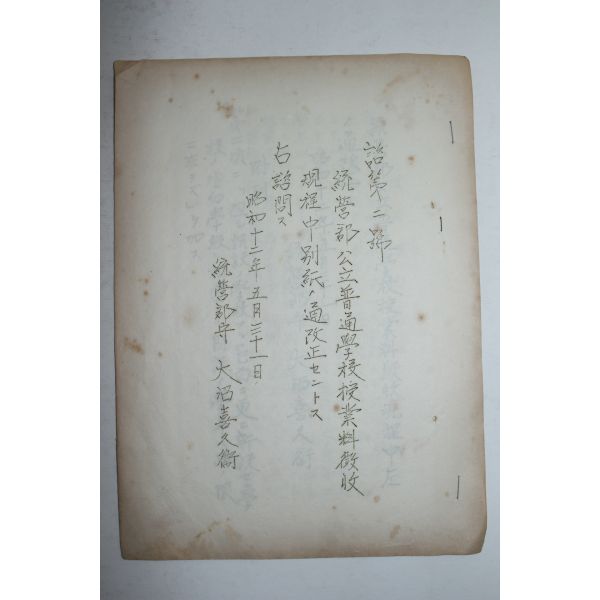 諮第二號
統營郡公立普通學校授業料徴收
規程中別紙ノ通改正セントス
右諮問ス
昭和十二年五月三十一日
統營郡守 大沼喜久衛